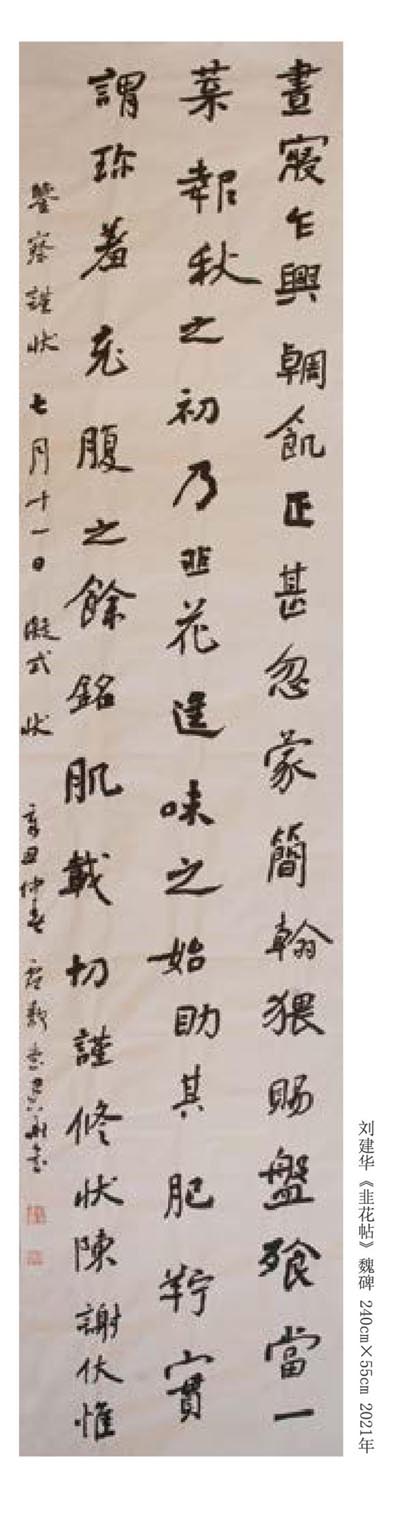 晝寢乍興輖飢正甚忽蒙簡翰猥賜盤飧當一
葉報秋之初乃韭花逞味之始助其肥羜實
謂珍羞充腹之餘銘肌載切謹修狀陳謝伏惟
鑒察謹狀 七月十一日 凝式狀 辛丑仲春
刘建华《韭花帖》魏碑 240cm×55cm 2021年